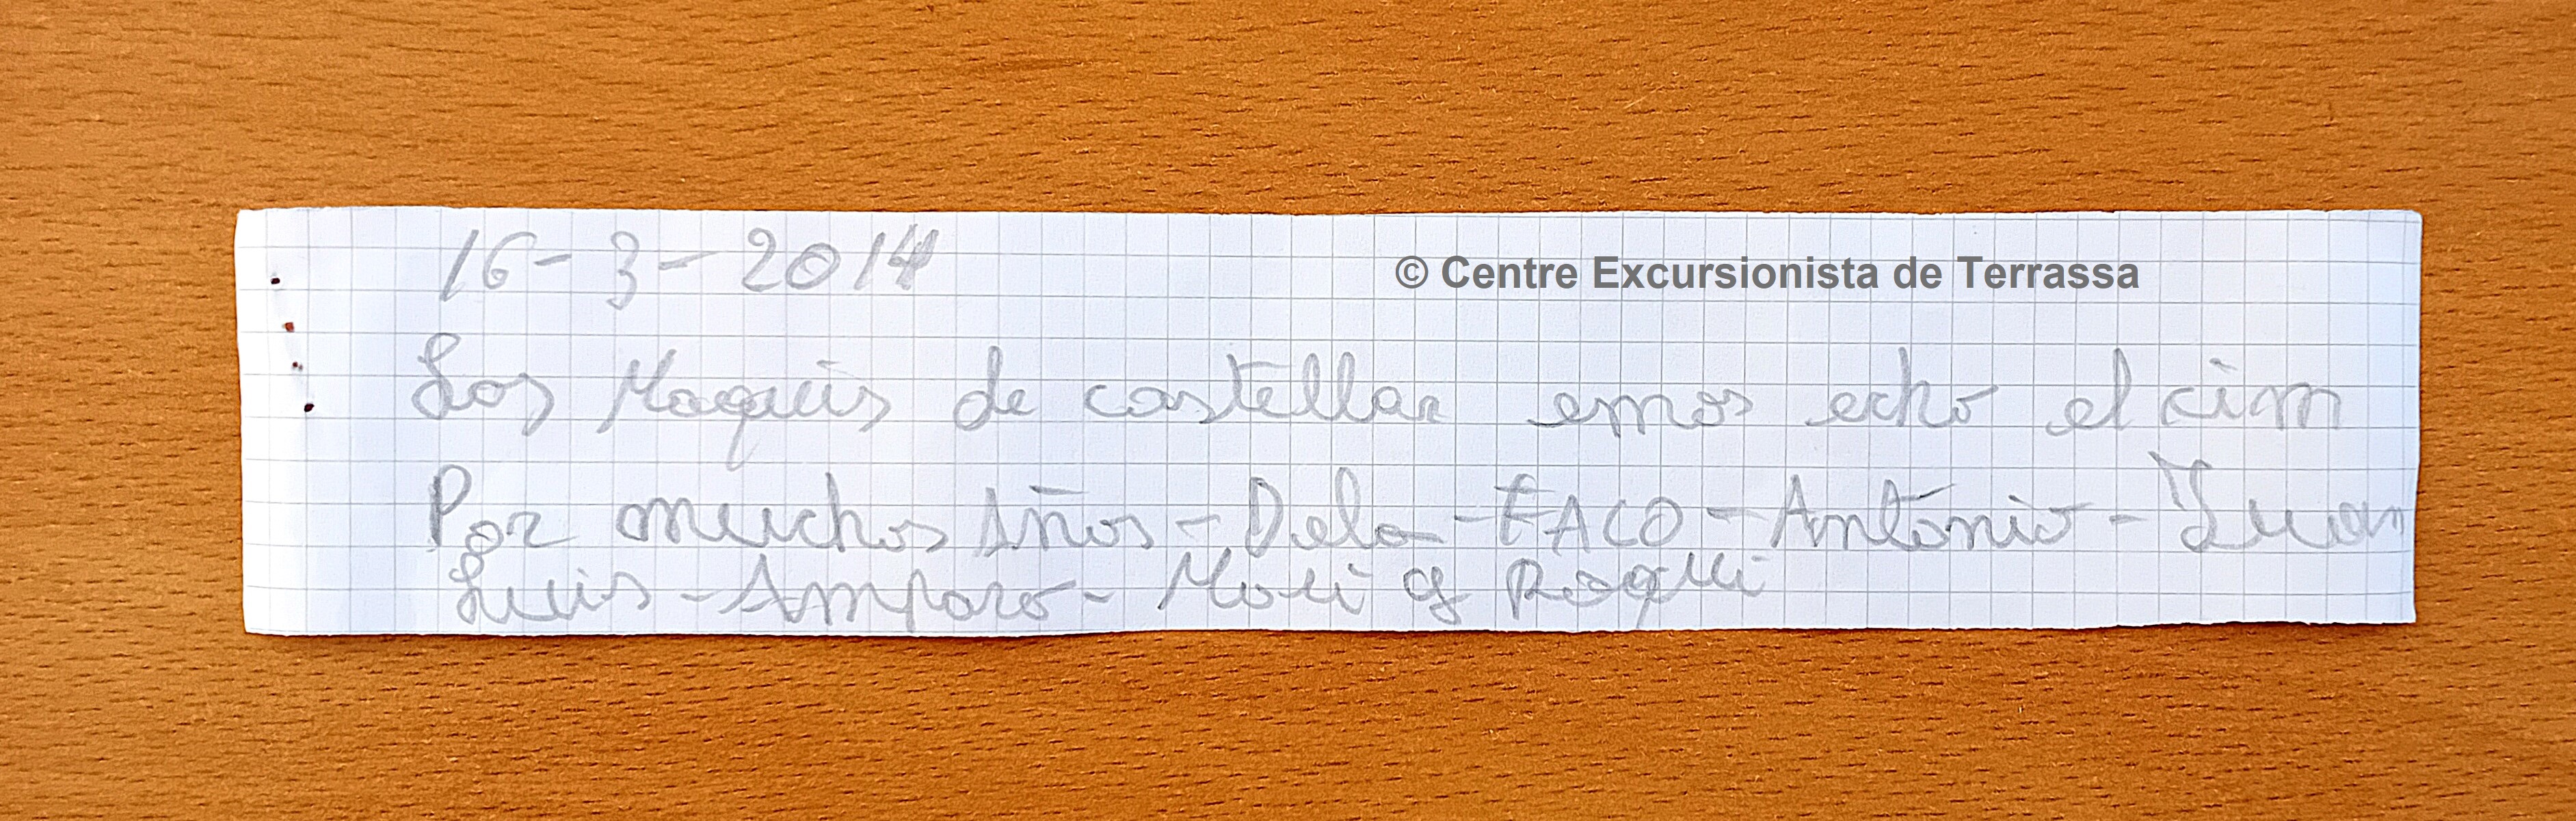 16-3-2014
© Centre Excursionista de Terrassa
Los Maquis de castellar emos echo el cim
Por muchos Años - Dela - FACO - Antonio - Juan
Luis - Amparo - Mari y Roqui